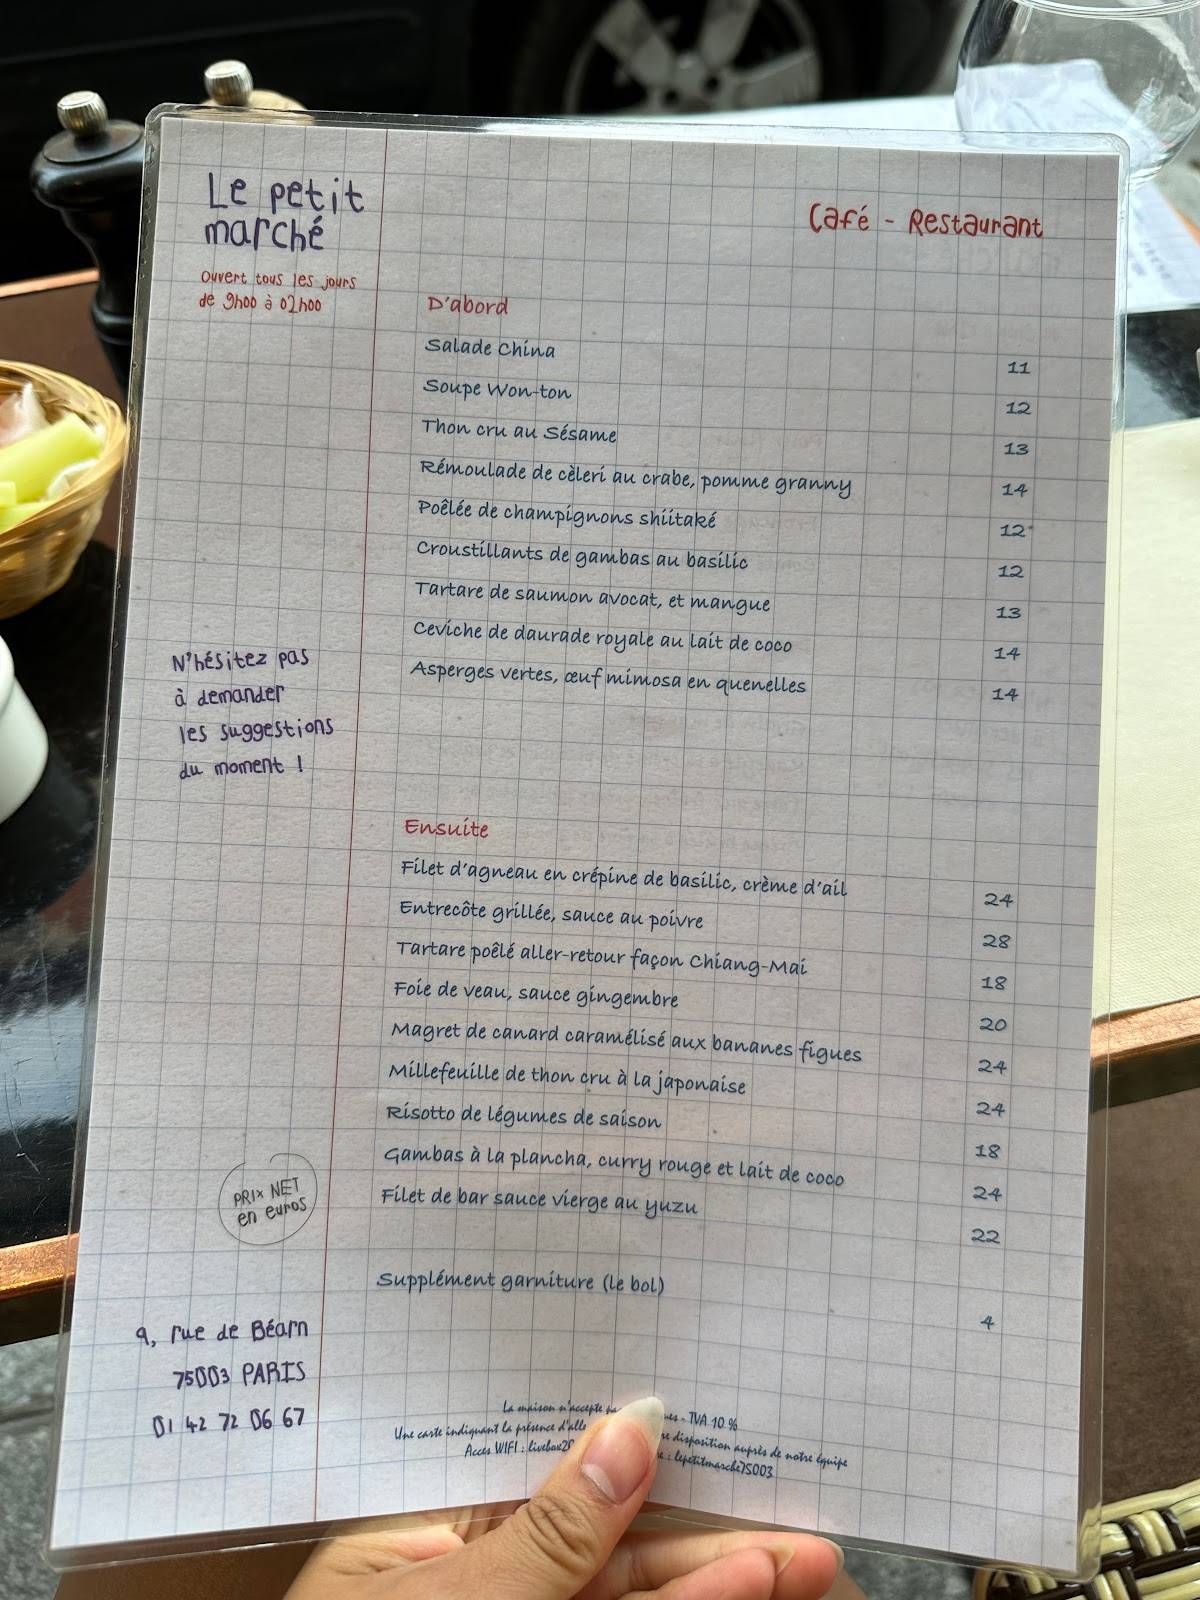 Le petit
marché
Café - Restaurant
Ouvert tous les jours
de 9h00 à 02h00
D'abord
Salade China 11
Soupe Won-ton 12
Thon cru au Sésame 13
Rémoulade de cèleri au crabe, pomme granny 14
Poêlée de champignons shiitaké 12
Croustillants de gambas au basilic 12
Tartare de saumon avocat, et mangue 13
Ceviche de daurade royale au lait de coco 14
Asperges vertes, œuf mimosa en quenelles 14
N'hésitez pas
à demander
les suggestions
du moment !
Ensuite
Filet d'agneau en crépine de basilic, crème d'ail 24
Entrecôte grillée, sauce au poivre 28
Tartare poêlé aller-retour façon Chiang-Mai 18
Foie de veau, sauce gingembre 20
Magret de canard caramélisé aux bananes figues 24
Millefeuille de thon cru à la japonaise 24
Risotto de légumes de saison 18
Gambas à la plancha, curry rouge et lait de coco 24
Filet de bar sauce vierge au yuzu 22
PRIX NET
en euros
Supplément garniture (le bol) 4
9, rue de Béarn
75003 PARIS
01 42 72 06 67
La maison n'accepte - TVA 10 %
Une carte indiquant la présence d' disposition auprès de notre équipe
Acces WIFI : : lepetitmarche75003